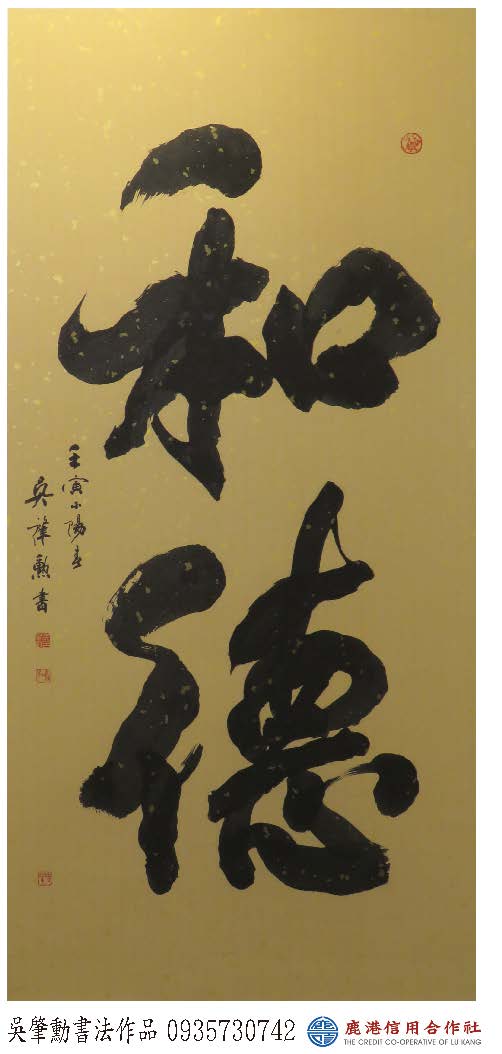 和德
壬寅小陽春
吳肇勳書
吳肇勳書法作品 0935730742
鹿港信用合作社
THE CREDIT CO-OPERATIVE OF LU KANG